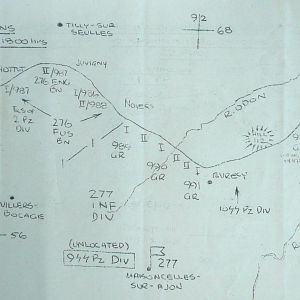 NS
1800 HRS
TILLY-SUR
SEULLES
9/2
68
HOTTOT
JUVIGNY
II/987
276 ENG
BN
I/987
I/986
II/988
NOYERS
R.ODON
2 PZ
DIV
276
FUS
BN
I
I
II
I
II
989
GR
990
GR
991
GR
HILL
112
BURESY
10 44 PZ DIV
277
INF
DIV
VILLERS-
BOCAGE
56
(UNLOCATED)
9 44 PZ DIV
277
MAISONCELLES-
SUR-AJON